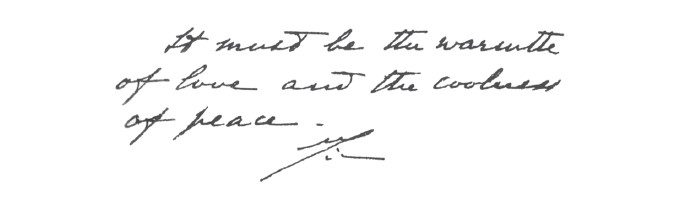 It must be the warmth
of love and the coolness
of peace.